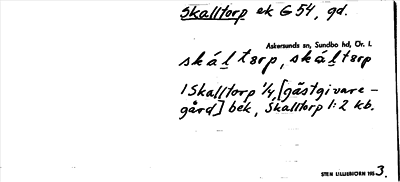 Skalltorp ek G 54, gd.
Askersunds sn, Sundbo hd, Ör. l.
skáltɘrp, skáltɘrp
1 Skalltorp 1/4, [gästgivare-
gård] bek, Skalltorp 1:2 kb.
STEN LILLIEBJÖRN 195 3.